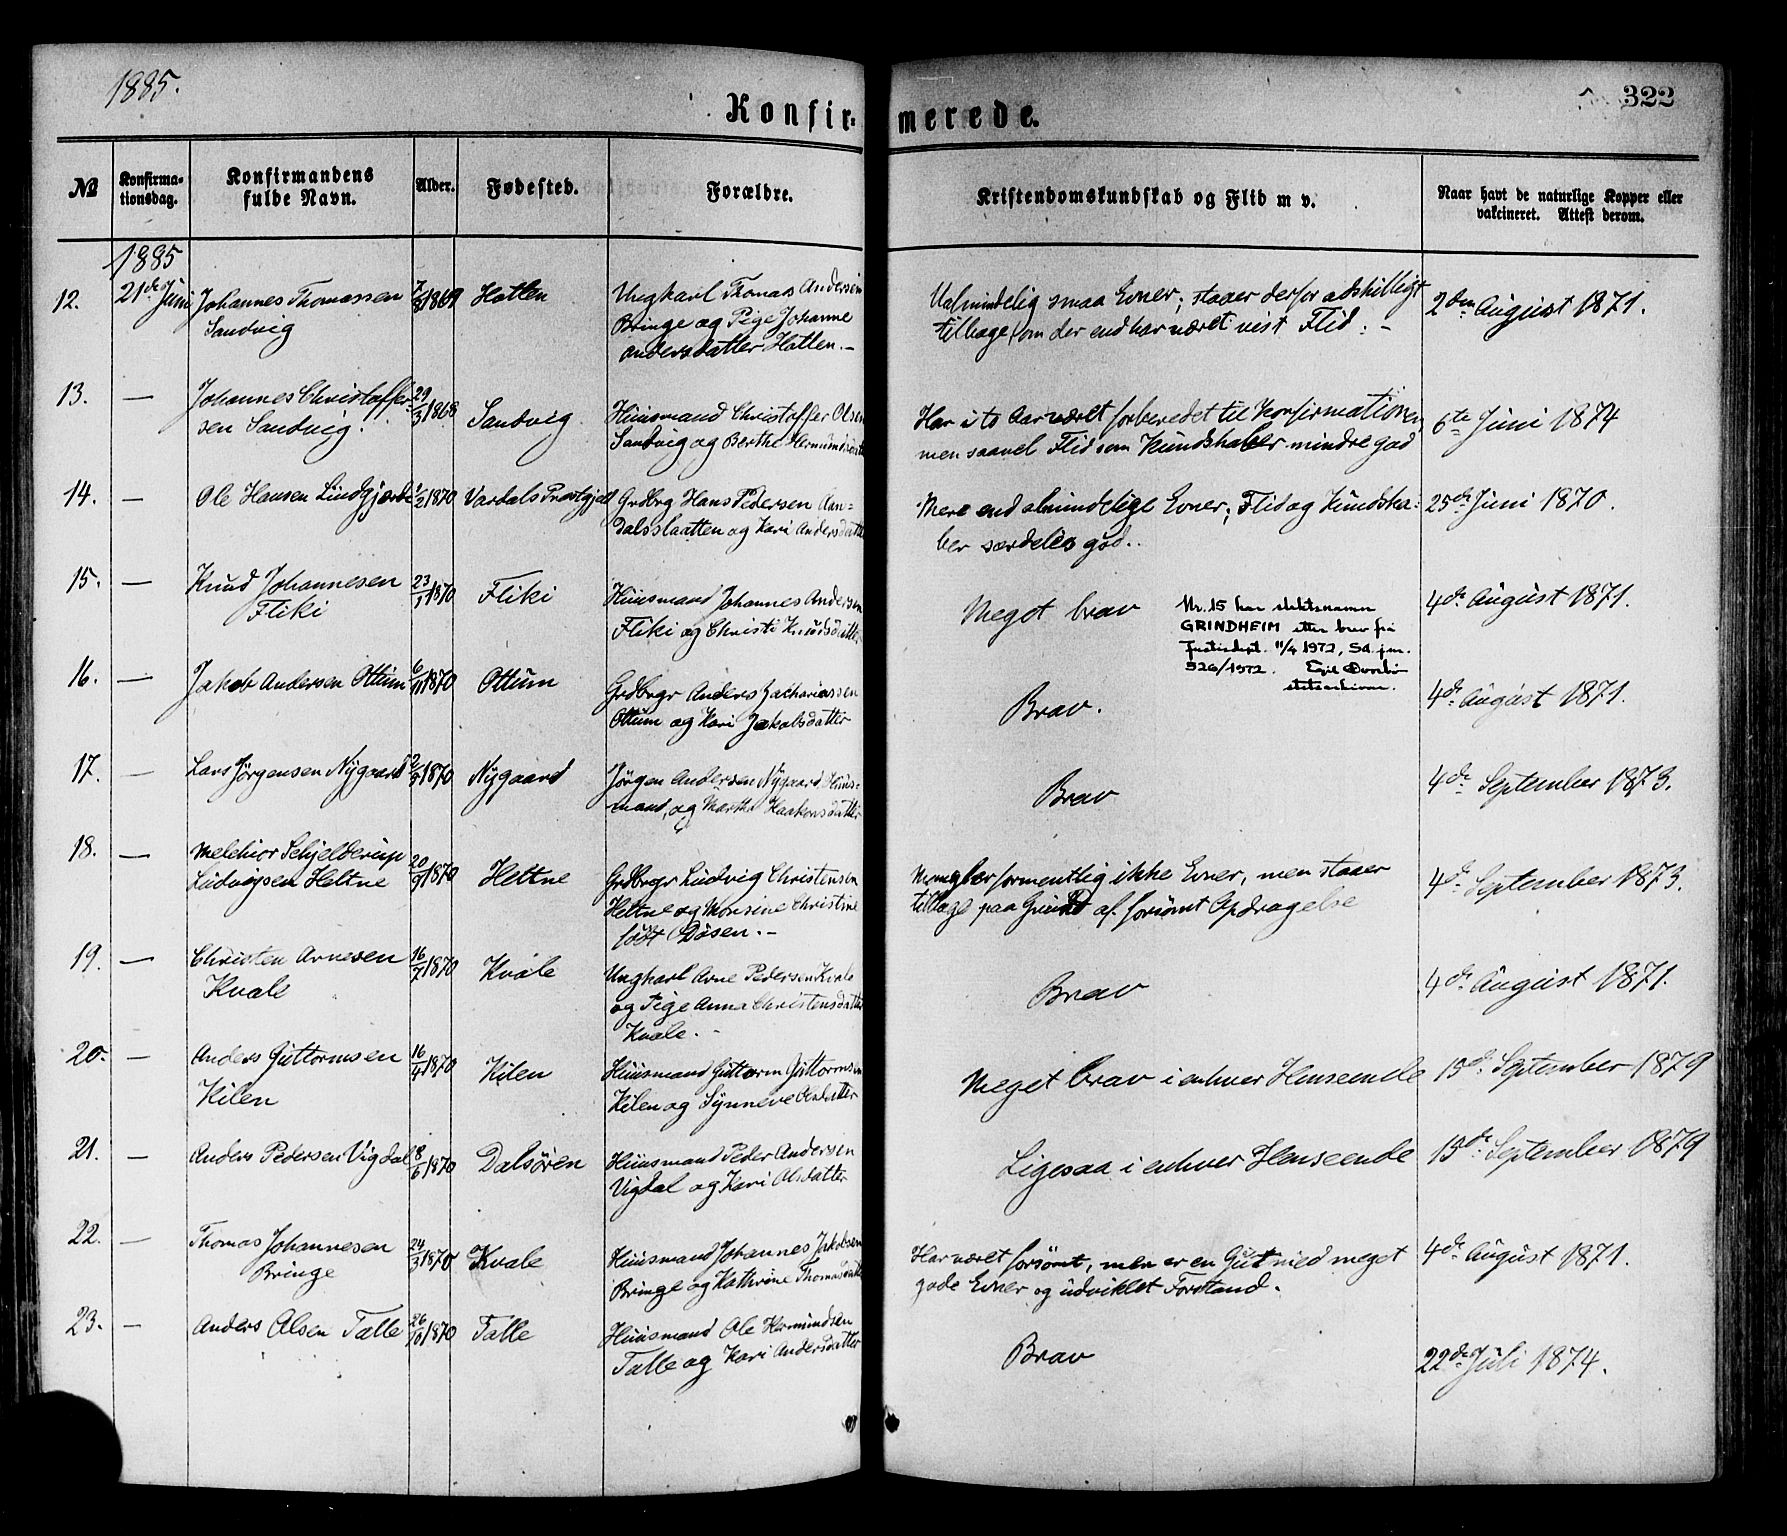 1885.
322
Konfir=
merede.
№
Konfirma=
tionsdag.
Konfirmandens
fulde Navn.
Alder.
Fødested.
Forældre.
Kristendomskundskab og Flid m v.
Naar havt de naturlige Kopper eller
vakcineret. Attest derom.
1885
12. 21de Juni Johannes Thomassen 1869 Hatlen Ungkarl Thomas Andersen Ualmindelig smaa Evner; staaer derfor adskilligt 2den August 1871.
Sandvig Bringe og Pige Johanne tilbage, om der end har været vist Flid. -
Andersdatter Hatlen. -
13. — Johannes Christoffer= 29/3 1868 Sandvig Huusmand Christoffer Olsen Har i to Aar været forberedet til Konfirmationen, 6te Juni 1874
sen Sandvig. Sandvig og Berthe Hermundsdatter men saavel Flid som Kundskaber mindre god
14. — Ole Hansen Lindgjerde 1/2 1870 Vardals Prestgjeld Grdbrg Hans Pedersen Aan= Mere end almindelige Evner; Flid og Kundska= 25de Juni 1870.
dalsslaatten og Kari Andersdatter ber særdeles god.
15. — Knud Johannesen 23/1 1870 Fliki Huusmand Johannes Andersen Meget brav 4de August 1871.
Fliki Fliki og Christi Knudsdatter
Nr. 15 har slektsnamn
GRINDHEIM etter brev frå
Justisdept. 11/4 1972, Sd. jnr.
926/1972. Egil Øvrebø
statsarkivar.
16. — Jakob Andersen Ottum 6/11 1870 Ottum Grdbrgr Anders Zachariassen Brav. 4de August 1871.
Ottum og Kari Jakobsdatter
17. — Lars Jørgensen Nygaard 1870 Nygaard Jørgen Andersen Nygaard Huus= Brav 4de September 1873.
mand, og Marthe Haakonsdatter
18. — Melchior Schjelderup 20/9 1870 Heltne Grdbrgr Ludvig Christensen Mangler formentlig ikke Evner, men staaer 4de September 1873.
Ludvigsen Heltne Heltne og Monsine Christine tilbage paa Grund af forsømt Opdragelse
født Døsen. -
19. — Christen Arnesen 16/7 1870 Kvale Ungkarl Arne Pedersen Kvale Brav 4de August 1871.
Kvale og Pige Anna Christensdatter
Kvale. -
20. — Anders Guttormsen 16/4 1870 Kilen Huusmand Guttorm Guttormsen Meget brav i enhver Henseende 15de September 1879
Kilen Kilen og Synneve Olsdatter
21. — Anders Pedersen Vigdal 8/6 1870 Dalsøren Huusmand Peder Andersen Ligesaa i enhver Henseende 15de September 1879
Vigdal og Kari Olsdatter
22. — Thomas Johannesen 24/3 1870 Kvale Huusmand Johannes Jakobsen Har været forsømt, men er en Gut med meget 4de August 1871.
Bringe Bringe og Kathrine Thomasdatter gode Evner og udviklet Forstand.
23. — Anders Olsen Talle 26/10 1870 Talle Huusmand Ole Hermundsen Brav 22de Juli 1874.
Talle og Kari Andersdatter